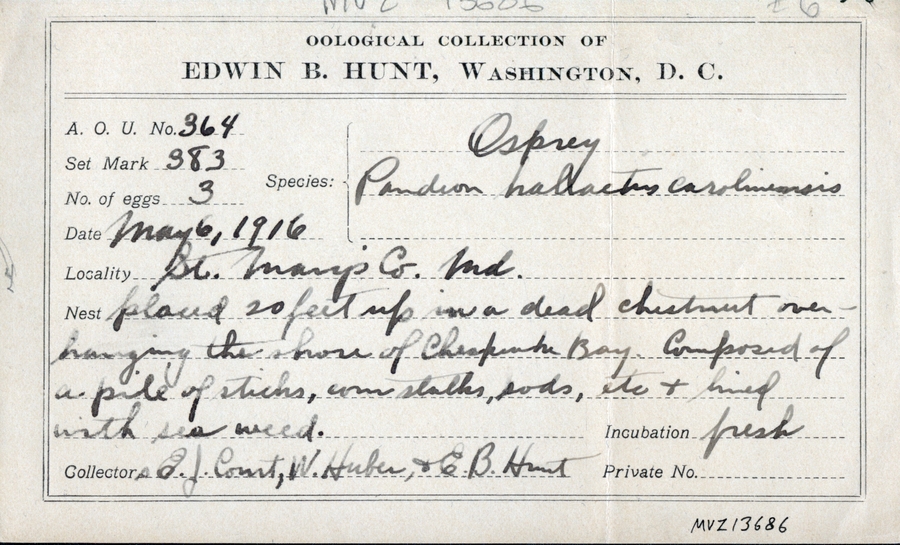 MVZ 13686
OOLOGICAL COLLECTION OF
EDWIN B. HUNT, WASHINGTON, D. C.
A. O. U. No. 364
Set Mark 383
No. of eggs 3
Date May 6, 1916
Species: Osprey
Pandion haliaetus carolinensis
Locality St. Mary's Co. Md.
Nest placed 20 feet up in a dead chestnut over-
hanging the shore of Chespeake Bay. Composed of
a pile of sticks, corn stalks, sods, etc + lined
with sea weed.
Incubation fresh
Collectors E. J. Court, W. Huber, & E. B. Hunt
Private No.
MVZ13686